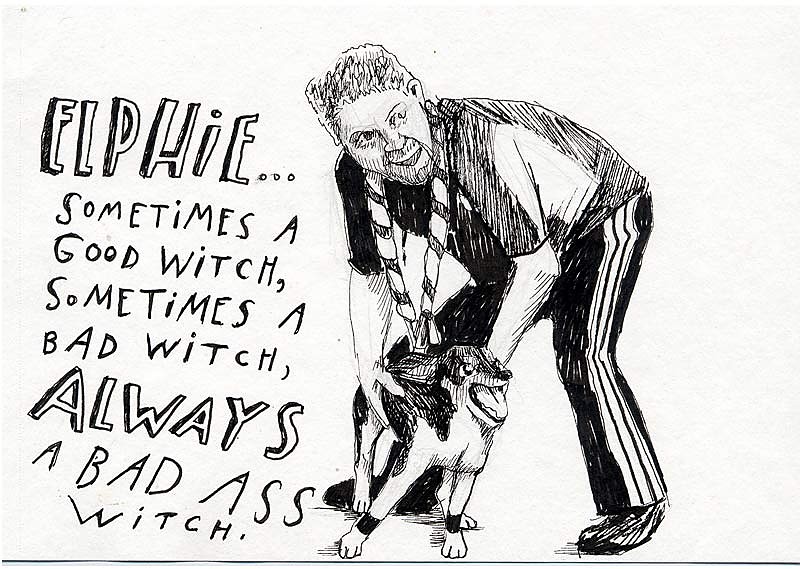 ELPHiE...
SOMETiMES A
GOOD WiTCH,
SOMETiMES A
BAD WiTCH,
ALWAYS
A BAD ASS
WiTCH.